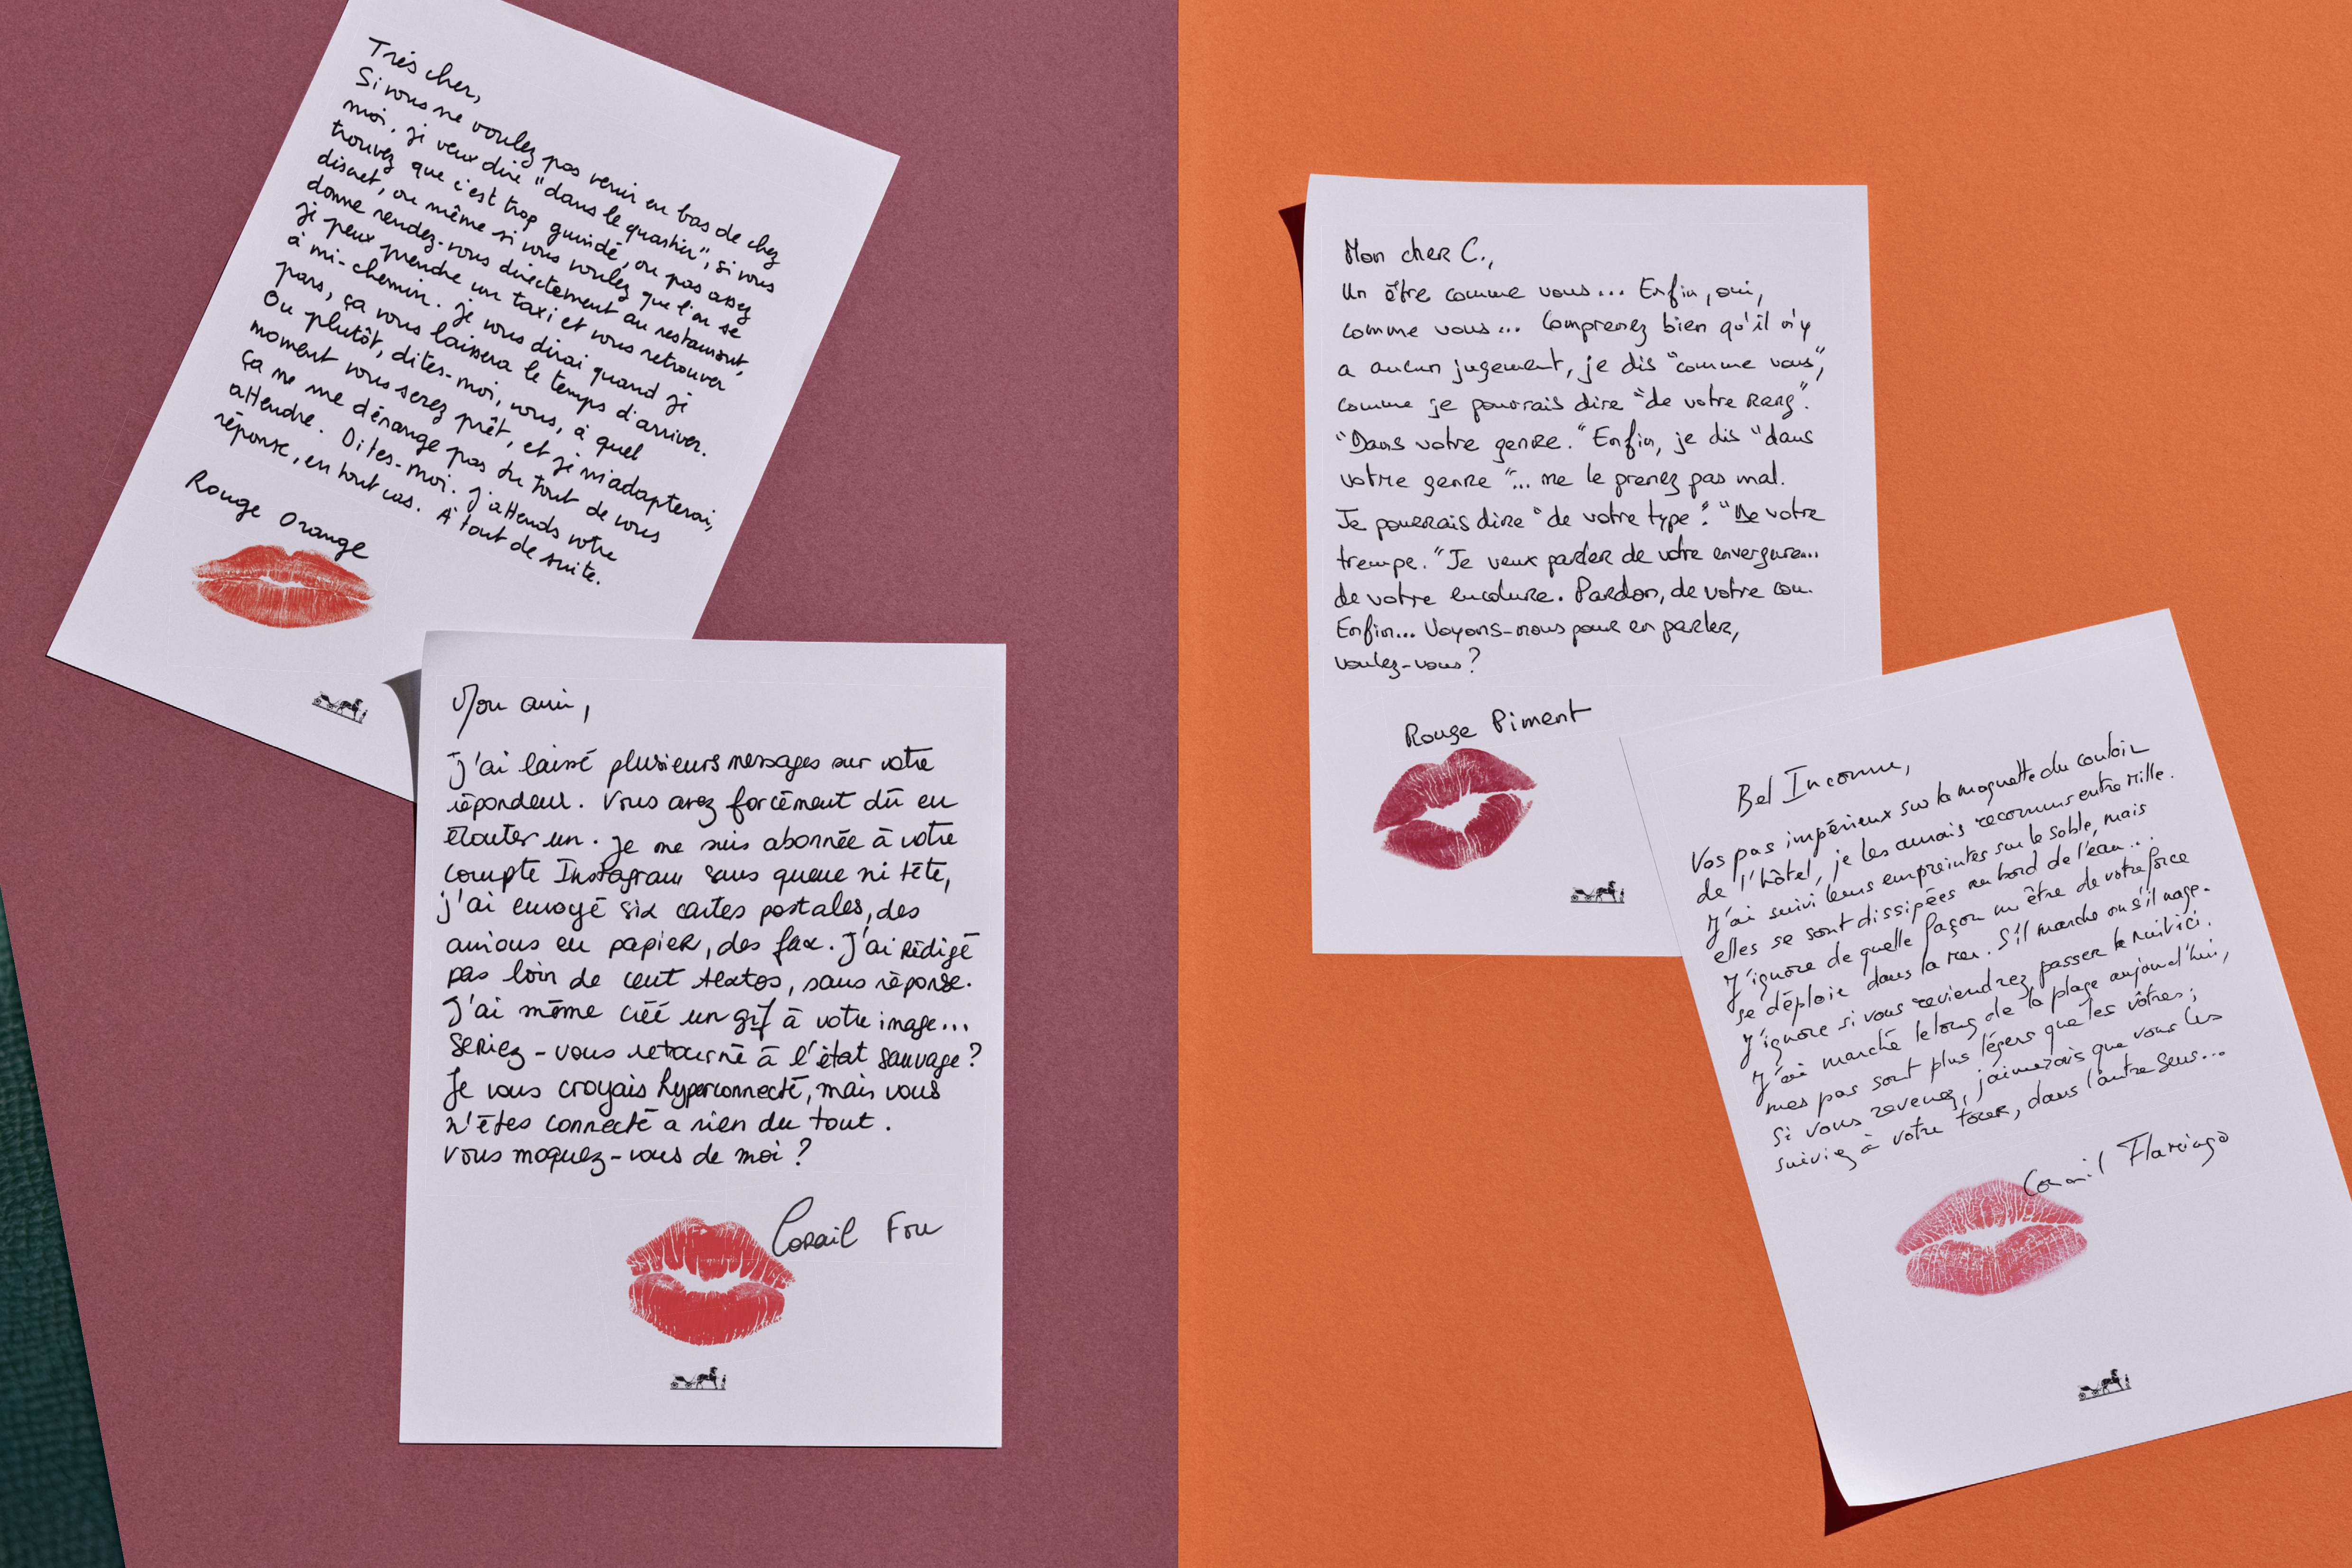 Très cher,
Si vous ne voulez pas venir en bas de chez
moi, je veux dire "dans le quartier", si vous
trouvez que c'est trop guindé, ou pas assez
discret, ou même si vous voulez que l'on se
donne rendez-vous directement au restaurant,
je peux prendre un taxi et vous retrouver
à mi-chemin. Je vous dirai quand je
pars, ça vous laissera le temps d'arriver.
Ou plutôt, dites-moi, vous, à quel
moment vous serez prêt, et je m'adapterai,
ça ne me dérange pas du tout de vous
attendre. Dites-moi. J'attends votre
réponse, en tout cas. À tout de suite.
Rouge Orange
Mon ami,
J'ai laissé plusieurs messages sur votre
répondeur. Vous avez forcément dû en
écouter un. Je me suis abonnée à votre
compte Instagram sans queue ni tête,
j'ai envoyé six cartes postales, des
avions en papier, des fax. J'ai rédigé
pas loin de cent textos, sans réponse.
J'ai même créé un gif à votre image...
Seriez-vous retourné à l'état sauvage ?
Je vous croyais hyperconnecté, mais vous
n'êtes connecté à rien du tout.
Vous moquez-vous de moi ?
Corail Fou
Mon cher C.,
Un être comme vous... Enfin, oui,
comme vous... Comprenez bien qu'il n'y
a aucun jugement, je dis "comme vous",
comme je pourrais dire "de votre rang".
"Dans votre genre." Enfin, je dis "dans
votre genre"... ne le prenez pas mal.
Je pourrais dire "de votre type". "De votre
trempe." Je veux parler de votre envergure...
de votre encolure. Pardon, de votre cou.
Enfin... Voyons-nous pour en parler,
voulez-vous ?
Rouge Piment
Bel Inconnu,
Vos pas impérieux sur la moquette du couloir
de l'hôtel, je les aurais reconnus entre mille.
J'ai suivi leurs empreintes sur le sable, mais
elles se sont dissipées au bord de l'eau...
J'ignore de quelle façon un être de votre force
se déploie dans la mer. S'il marche ou s'il nage.
J'ignore si vous reviendrez passer la nuit ici.
J'ai marché le long de la plage aujourd'hui,
mes pas sont plus légers que les vôtres ;
si vous revenez, j'aimerais que vous les
suiviez à votre tour, dans l'autre sens...
Corail Flamingo